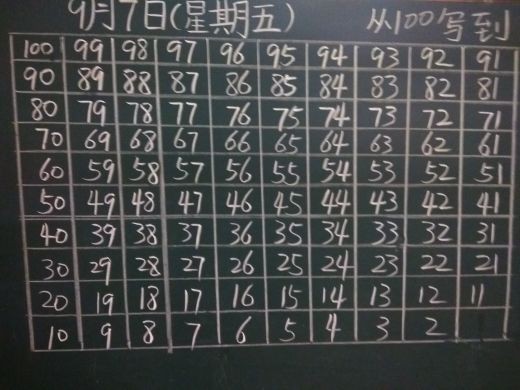 9月7日(星期五) 从100写到
100 99 98 97 96 95 94 93 92 91
90 89 88 87 86 85 84 83 82 81
80 79 78 77 76 75 74 73 72 71
70 69 68 67 66 65 64 63 62 61
60 59 58 57 56 55 54 53 52 51
50 49 48 47 46 45 44 43 42 41
40 39 38 37 36 35 34 33 32 31
30 29 28 27 26 25 24 23 22 21
20 19 18 17 16 15 14 13 12 11
10 9 8 7 6 5 4 3 2